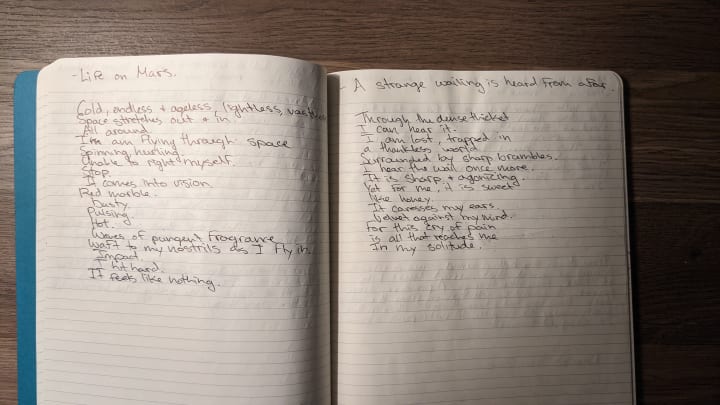 - Life on Mars.
Cold, endless + ageless, lightless, vastness
Space stretches out + in
All around
I'm am Flying through space
Spinning, hurling.
Unable to right myself.
Stop.
It comes into vision
Red marble.
Dusty
Pulsing
Hot.
Waves of pungent Fragrance
Waft to my nostrils as I fly in.
Impact.
I hit hard.
It feels like nothing.
- A strange wailing is heard from afar.
Through the dense thicket
I can hear it.
I am lost, trapped in
a thankless world
Surrounded by sharp brambles.
I hear the wail once more.
It is sharp + agonizing.
Yet for me, it is sweet
like honey.
It caresses my ears
Velvet against my mind.
For this cry of pain
is all that reaches me
In my solitude.